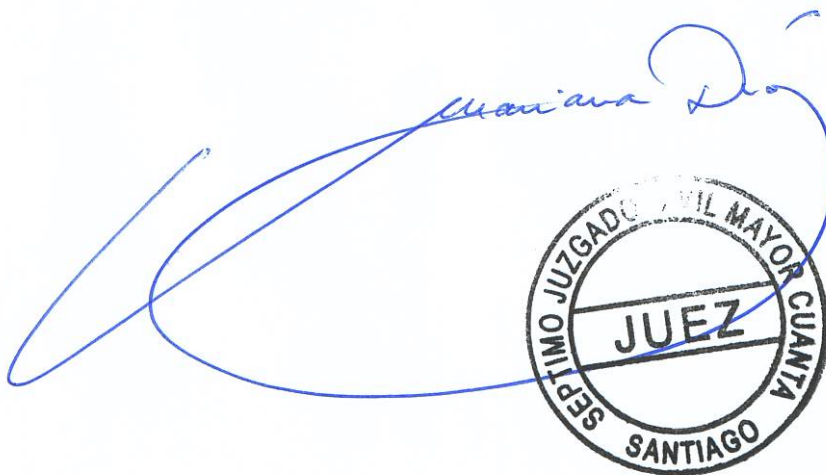 Mariana
SEPTIMO JUZGADO CIVIL MAYOR CUANTA
JUEZ
SANTIAGO